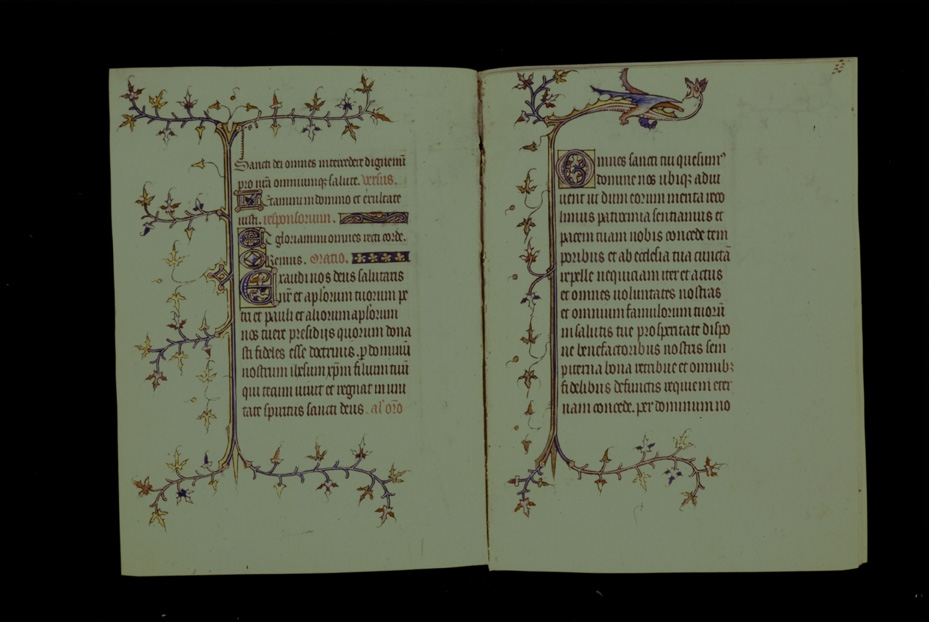 Sancti dei omnes intercedere dignemi
pro nrā omniumqȝ salute. versus.
Letamini in domino et exultate
iusti. responsorium.
Et gloriamini omnes recti corde.
Oremus. Oratio.
Exaudi nos deus salutaris
nr̄ et apłorum tuorum pe
tri et pauli et aliorum apłorum
nos tuere presidijs quorum dona
sti fideles esse doctrinis. p dominū
nostrum ihesum xp̄m filium tuū
qui tecum uiuit et regnat in uni
tate spiritus sancti deus. al' orō
Omnes sancti tui quesum9
domine nos ubiqȝ adiu
uent ut dum eorum merita reco
limus patrocinia sentiamus et
pacem tuam nobis concede tem
poribus et ab ecclesia tua cunctā
repelle nequiciam iter et actus
et omnes uoluntates nostras
et omnium famulorum tuorū
in salutis tue prosperitate dispo
ne benefactoribus nostris sem
piterna bona retribue et omnibȝ
fidelibus defunctis requiem eter
nam concede. per dominum no